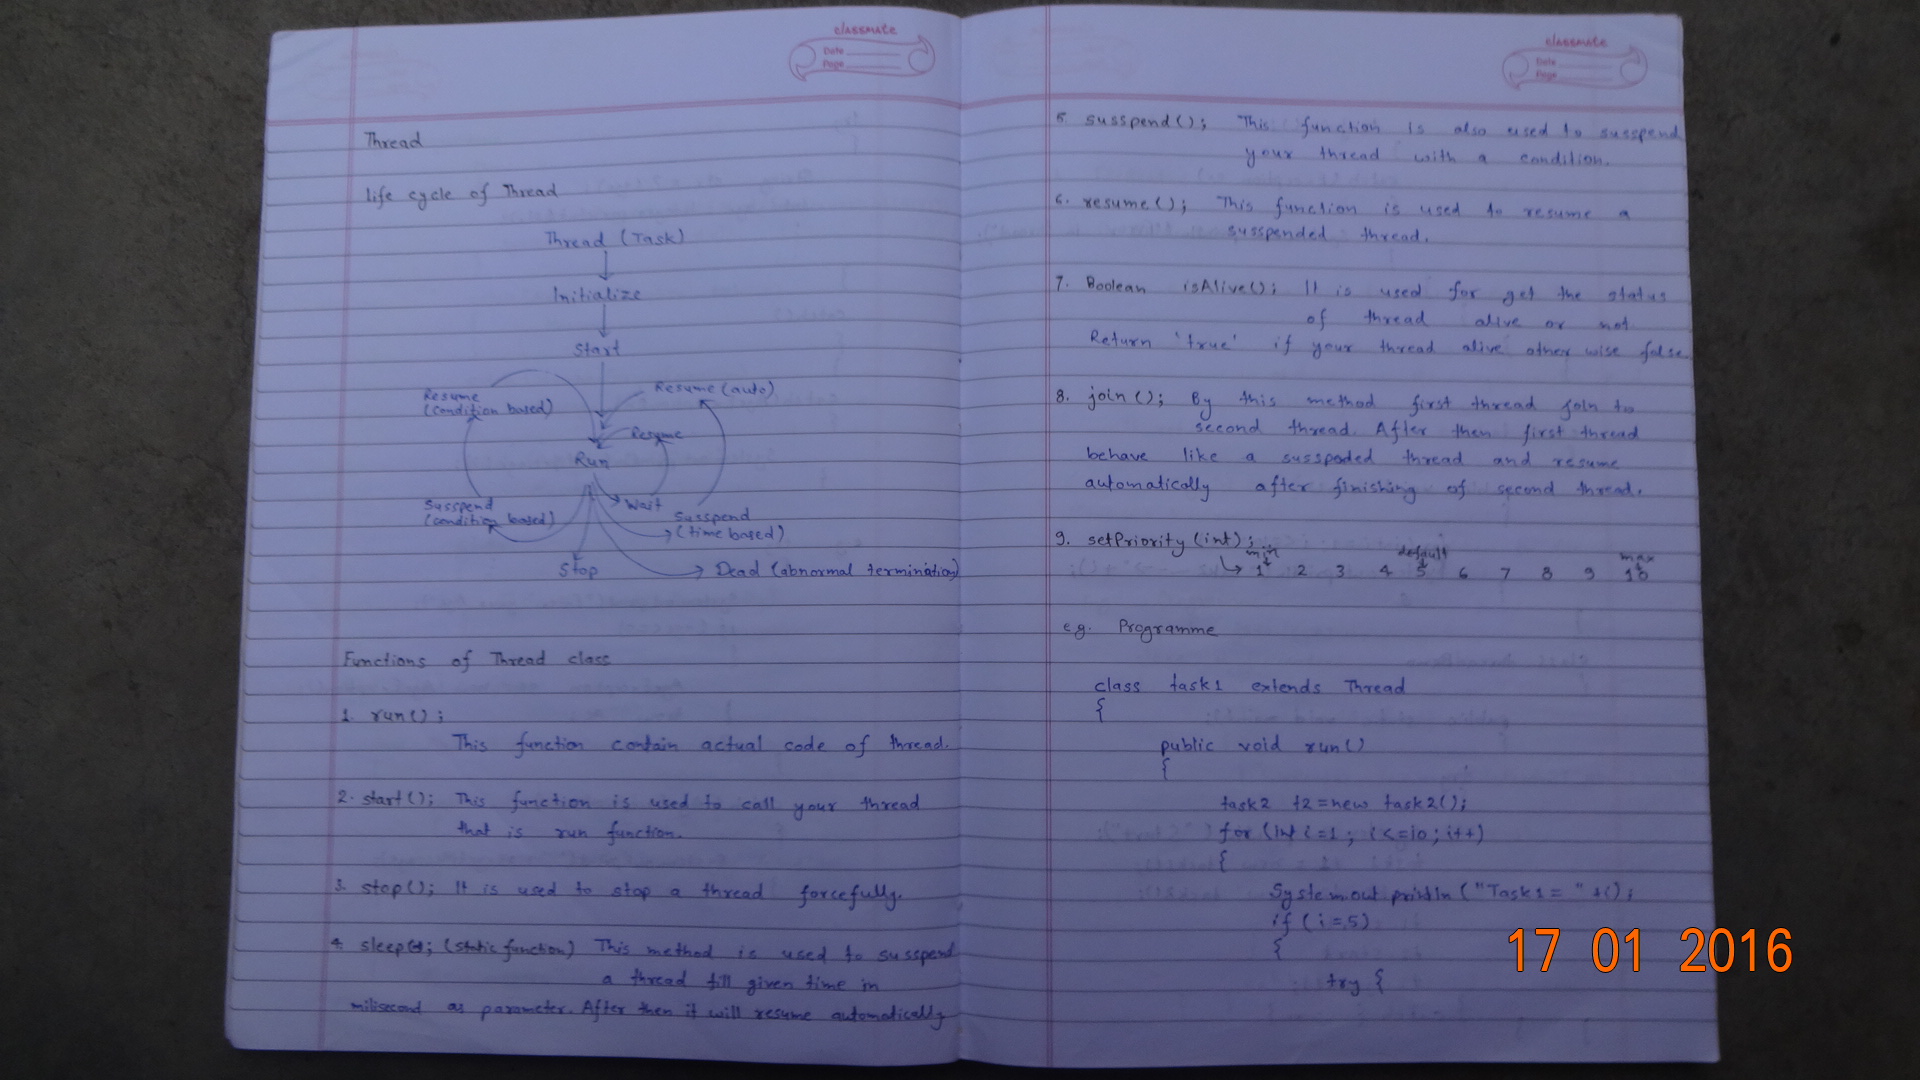 classmate
Date
Page
Thread
life cycle of Thread
Thread (Task)
Initialize
Start
Resume
(condition based)
Resume (auto)
Resume
Run
Susspend
(condition based)
Wait
Susspend
(time based)
Stop
Dead (abnormal termination)
Functions of Thread class
1. run();
This function contain actual code of thread.
2. start(); This function is used to call your thread
that is run function.
3. stop(); It is used to stop a thread forcefully.
4. sleep(); (static function) This method is used to susspend
a thread till given time in
milisecond as parameter. After then it will resume automatically
classmate
Date
Page
5. susspend(); This function is also used to susspend
your thread with a condition.
6. resume(); This function is used to resume a
susspended thread.
7. Boolean isAlive(); It is used for get the status
of thread alive or not
Return 'true' if your thread alive other wise false
8. join(); By this method first thread join to
second thread. After then first thread
behave like a susspoded thread and resume
automatically after finishing of second thread.
9. setPriority (int);
min default max
1 2 3 4 5 6 7 8 9 10
eg. Programme
class task1 extends Thread
{
public void run()
{
task2 t2=new task2();
for (int i=1; i<=10; i++)
{
System.out.println ("Task1= " +i);
if (i=5)
{
try {
17 01 2016